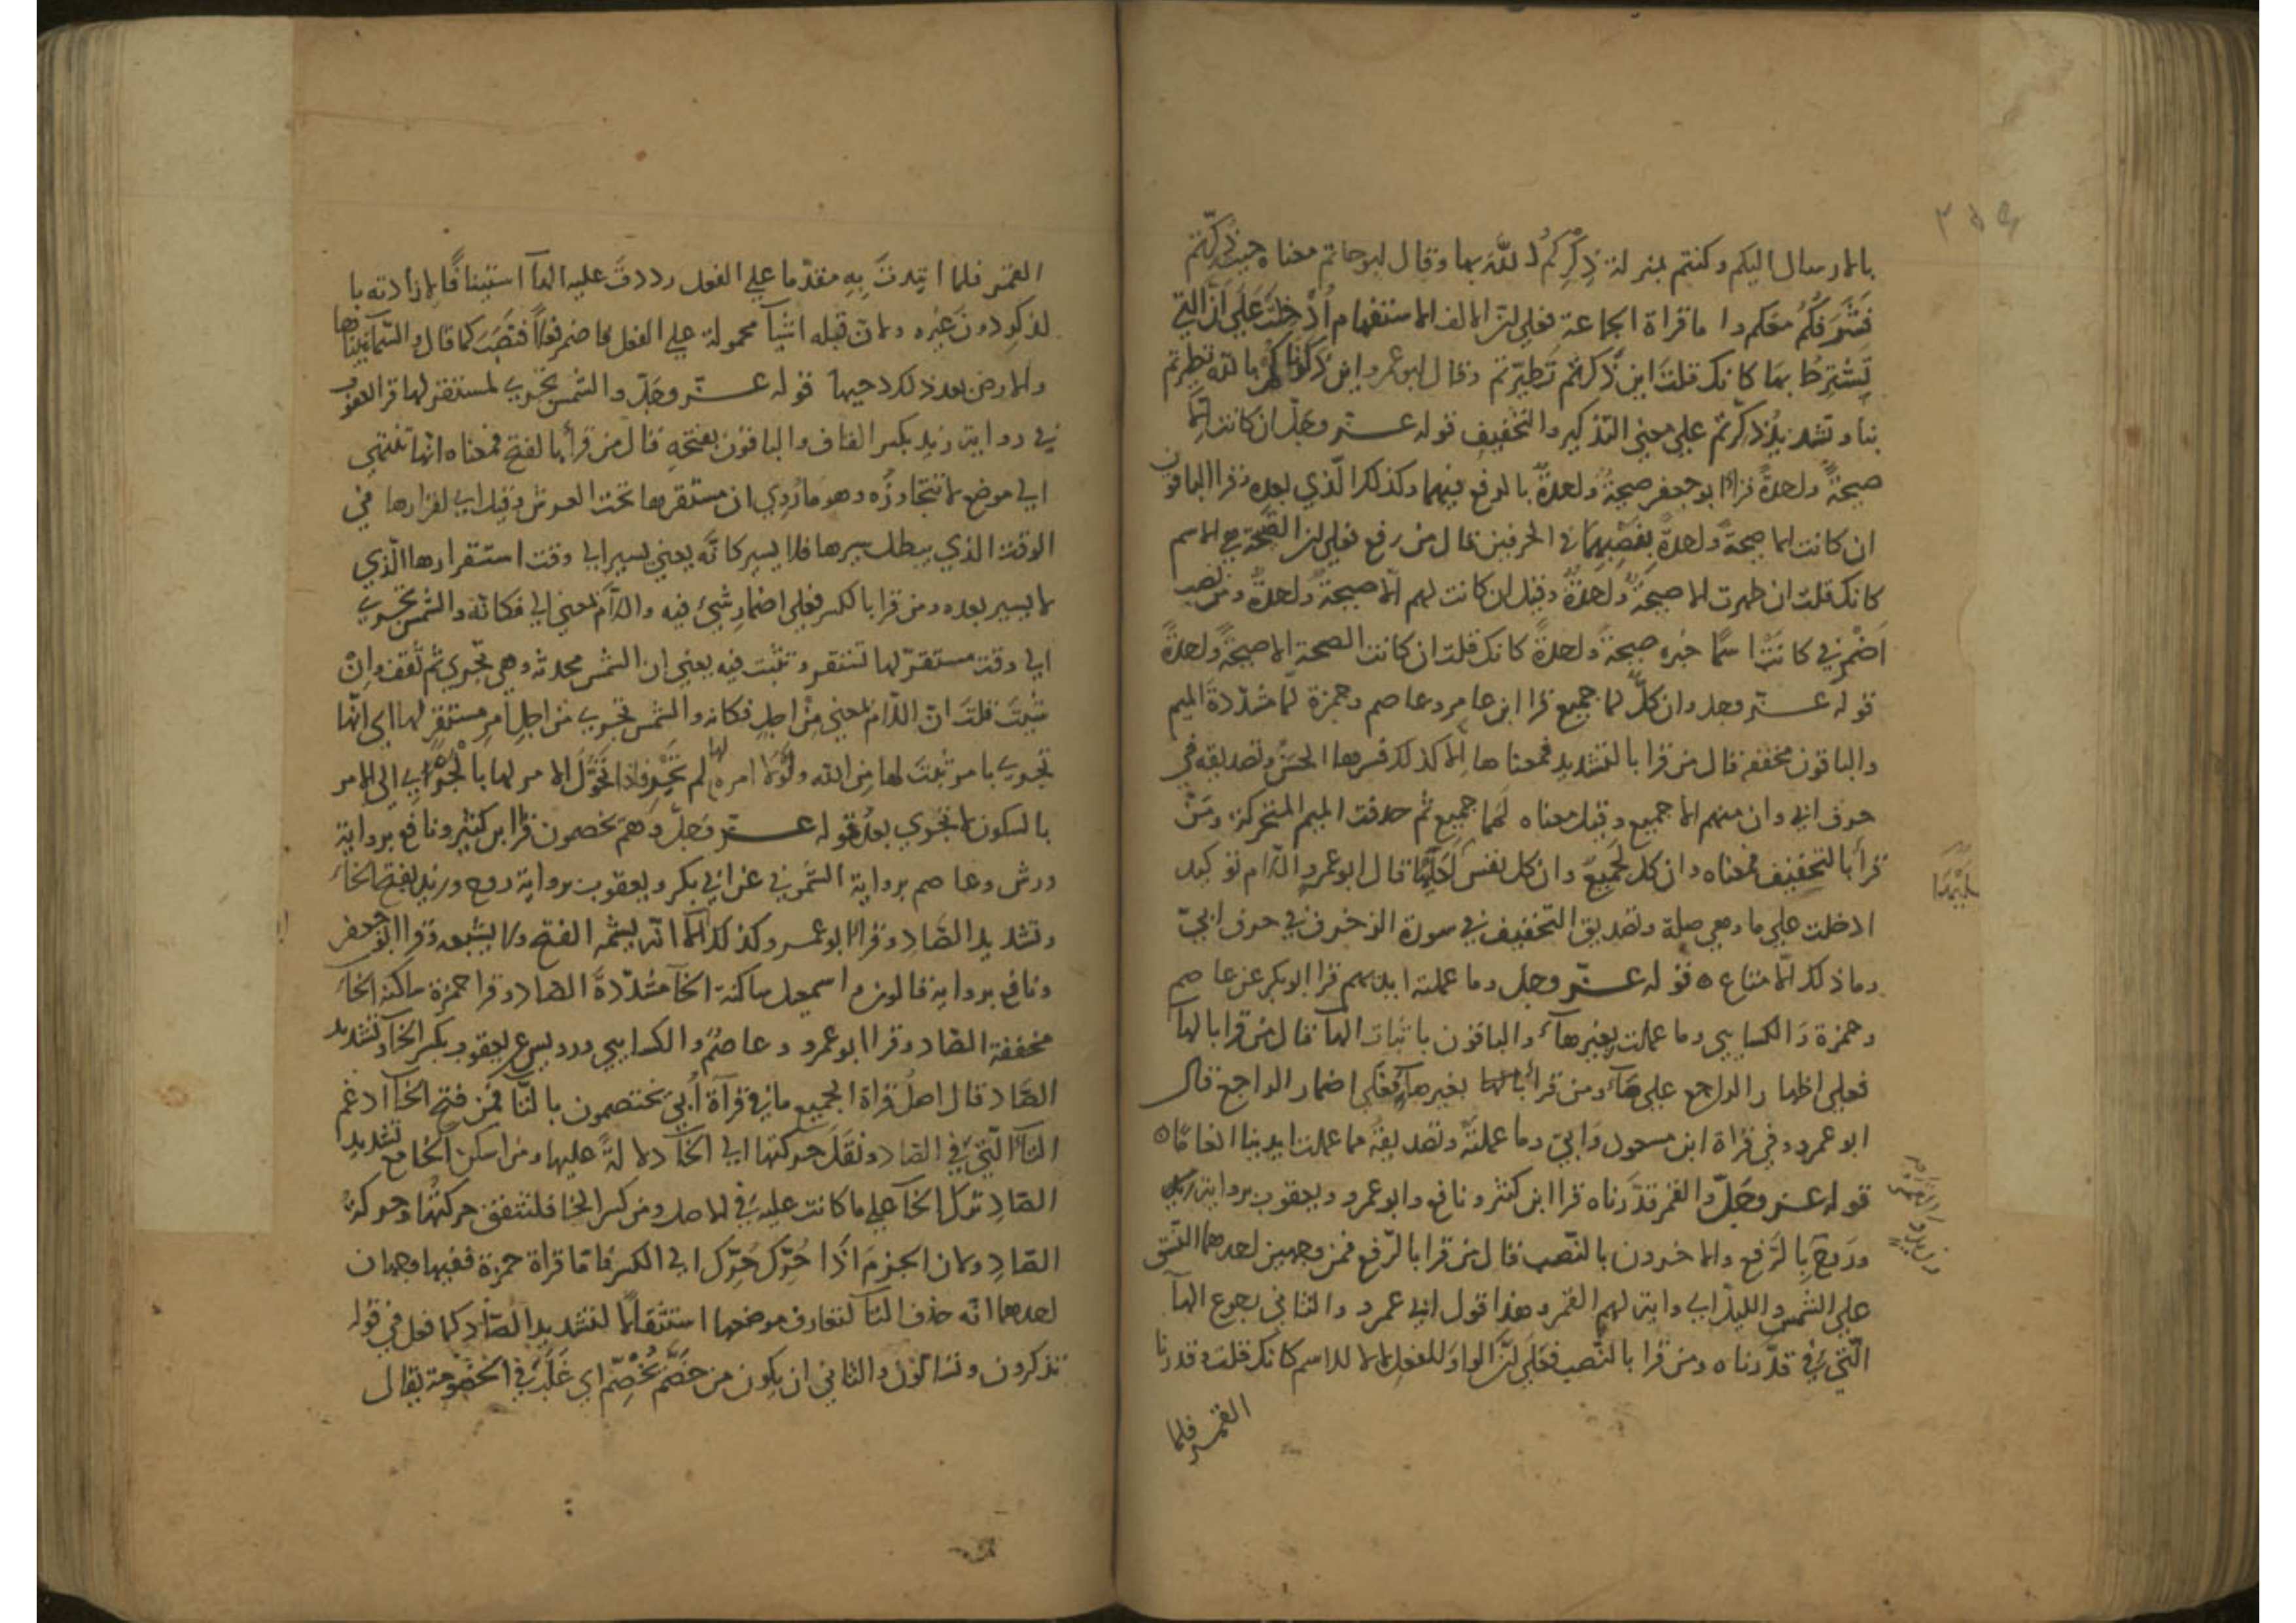 بالارسال اليكم وكنتم بمنزلة ذكركم الله بها وقال ابو حاتم معناه حيث ذكرتم
فشؤمكم معكم واما قراة الجماعة فعلى ان الالف الاستفهام أدخلت على ان التي
يشترط بها كانك قلت اين ذكرتم تطيرتم وقال ابو عمرو اين ذكرناكم بالله تطيرتم
بنا وتشديد ذكرتم على معنى التذكير والتخفيف قوله عز وجل ان كانت الا
صيحة واحدة قرا ابو جعفر صيحة واحدة بالرفع فيهما وكذلك الذي بعده وقرا الباقون
ان كانت الا صيحة واحدة بنصبهما في الحرفين قال من رفع فعلى ان الصيحة هي الاسم
كانك قلت ان ظهرت الا صيحة واحدة وقيل ان كانت لهم الا صيحة واحدة ومن نصب
اضمر في كانت اسما خبره صيحة واحدة كانك قلت ان كانت الصيحة الا صيحة واحدة
قوله عز وجل وان كل لما جميع قرا ابن عامر وعاصم وحمزة لما مشددة الميم
والباقون مخففة قال من قرا بالتشديد فمعناها الا كذلك فسرها الحسن وتصديقه في
حرف ابي وان منهم الا جميع وقيل معناه لمما جميع ثم حذفت الميم المتحركة ومن
قرأ بالتخفيف فمعناه وان كل لجميع وان كل نفس لعليها قال ابو عمرو اللام توكيد
ادخلت على ما وهي صلة وتصديق التخفيف في سورة الزخرف في حرف ابي
وما ذلك الا متاع ٥ قوله عز وجل وما عملته ايديهم قرا ابو بكر عن عاصم
وحمزة والكسايي وما عملت بغير هآء والباقون باثبات الهآ قال من قرا بالهآ
فعلى اظهار الراجع على هآء ومن قرأ بغير هآء فعلى اضمار الراجع قال
ابو عمرو وفي قراة ابن مسعود وابي وما عملته وتصديقه مما عملت ايدينا انعاما ٥
قوله عز وجل والقمر قدرناه قرا ابن كثير ونافع وابو عمرو ويعقوب برواية
وروح بالرفع والاخرون بالنصب قال من قرا بالرفع فمن وجهين احدهما النسق
على الشمس والليل اي واية لهم القمر وهذا قول ابي عمرو والثاني رجوع الهآ
التي في قدرناه ومن قرا بالنصب فعلى ان الواو للفعل لا للاسم كانك قلت وقدرنا
القمر فلما
القمر فلما ابتدئت به مقدما على الفعل رددت عليه الهآ استينافا لارادته با
لذكر دون غيره ولان قبله اشيآ محمولة على الفعل فاضمر فعلا فنصب كما قال والسمآ بنيناها
والارض بعد ذلك دحيها قوله عز وجل والشمس تجري لمستقر لها قرا يعقوب
في رواية زيد بكسر القاف والباقون بفتحه قال من قرأ بالفتح فمعناه انها تنتهي
الى موضع لا تتجاوزه وهو ما روي ان مستقرها تحت العرش وقيل الى لقرارها في
الوقت الذي يبطل سيرها فلا يسير كانه يعني يسير الى وقت استقرارها الذي
لا يسير بعده ومن قرا بالكسر فعلى اضمار شيء فيه واللام بمعنى الى فكانه والشمس تجري
الى وقت مستقر لها تستقر وتثبت فيه يعني ان الشمس محدثة وهي تجري ثم تقف وان
شيت قلت ان اللام بمعنى من اجل فكانه والشمس تجري من اجل امر مستقر لها اي انها
تجري بامر ثبت لها من الله ولولا امره لها لم تجر فاذا تحول الامر لها بالجري الى الامر
بالسكون لم تجري بعد قوله عز وجل وهم يخصمون قرا ابن كثير ونافع برواية
ورش وعاصم برواية الشموني عن ابي بكر ويعقوب برواية روح وزيد بفتح الخآء
وتشديد الصاد وقرا ابو عمرو كذلك الا انه يشم الفتح ولا يشبعه وقرا ابو جعفر
ونافع برواية قالون واسمعيل ساكنة الخآ مشددة الصاد وقرا حمزة ساكنة الخآء
مخففة الصاد وقرا ابو عمرو وعاصم والكسايي ورويس عن يعقوب بكسر الخآ وتشديد
الصاد قال اصل قراة الجميع ما في قرآة أبي يختصمون بالتآ فمن فتح الخآ ادغم
التآء التي في الصاد ونقل حركتها الى الخآ دلالة عليها ومن اسكن الخا مع تشديد
الصاد ترك الخآ على ما كانت عليه في الاصل ومن كسر الخا فلتتفق حركتها وحركة
الصاد ولان الجزم اذا حرك حرك الى الكسر فاما قراة حمزة ففيها وجهان
احدهما انه حذف التآ لتعارف موضعها استثقالا لتشديد الصاد كما فعل في قوله
تذكرون وتساألون والثاني ان يكون من خصم يخصم اي غلب في الخصومة يقال